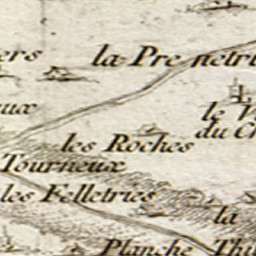 ers
la Pre netri
aux
le V
du Ch
les Roches
Tourneux
les Felletries
la
Planche Thi